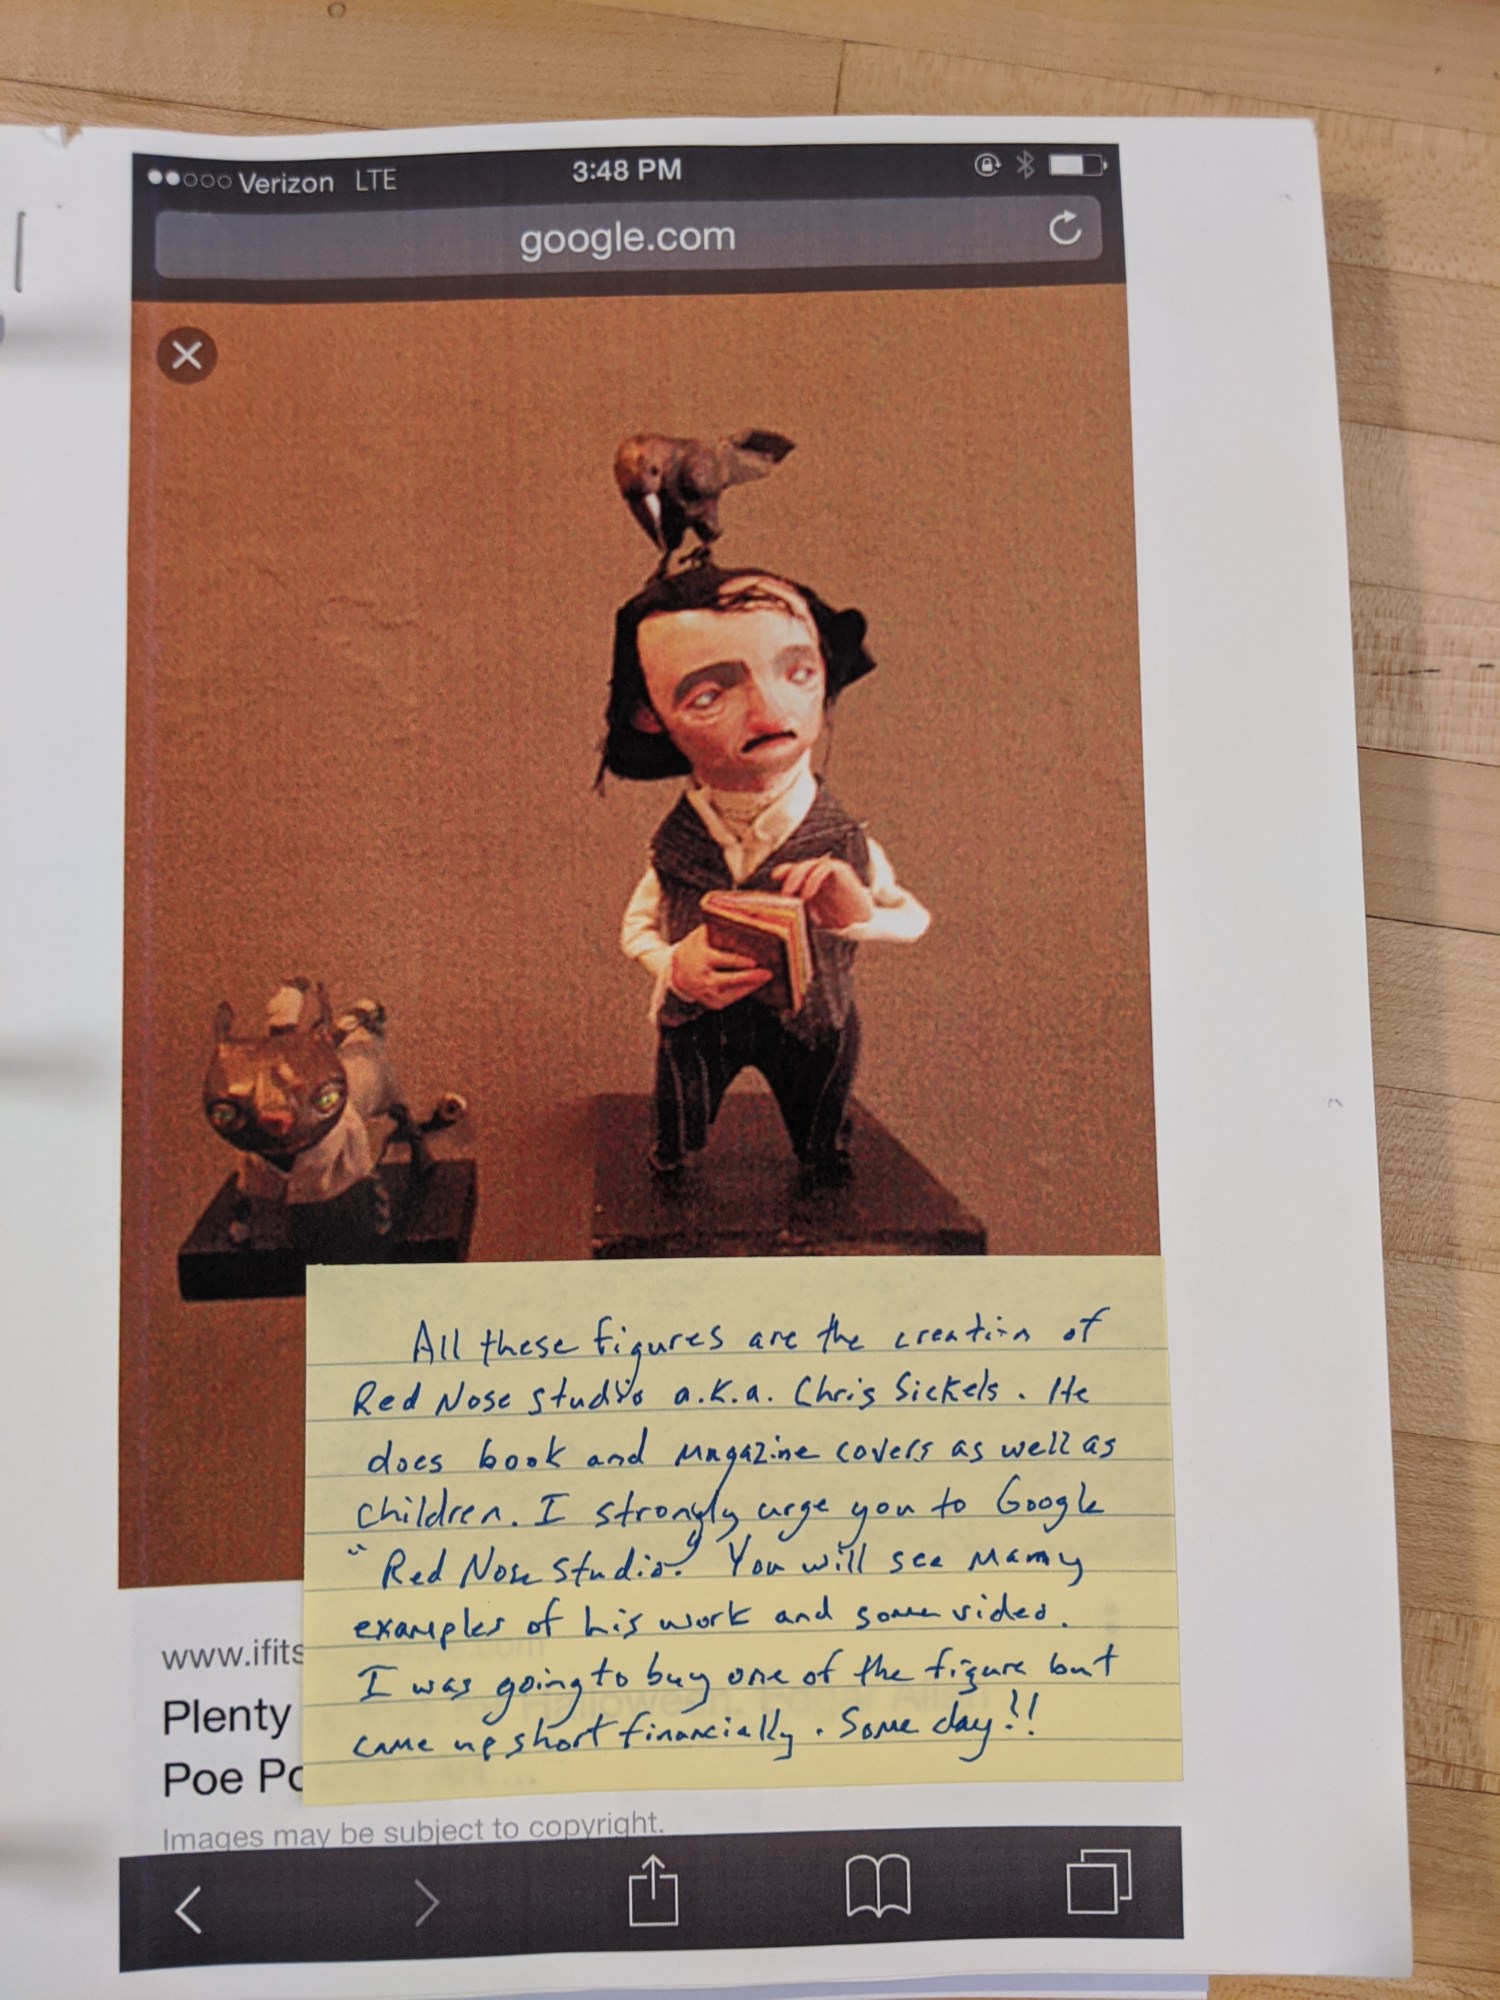 Verizon LTE 3:48 PM
google.com
All these figures are the creation of
Red Nose Studio a.k.a. Chris Sickels. He
does book and magazine covers as well as
children. I strongly urge you to Google
"Red Nose Studio." You will see many
examples of his work and some video.
I was going to buy one of the figure but
came up short financially. Some day!!
www.ifits
Plenty
Poe Po
Images may be subject to copyright.